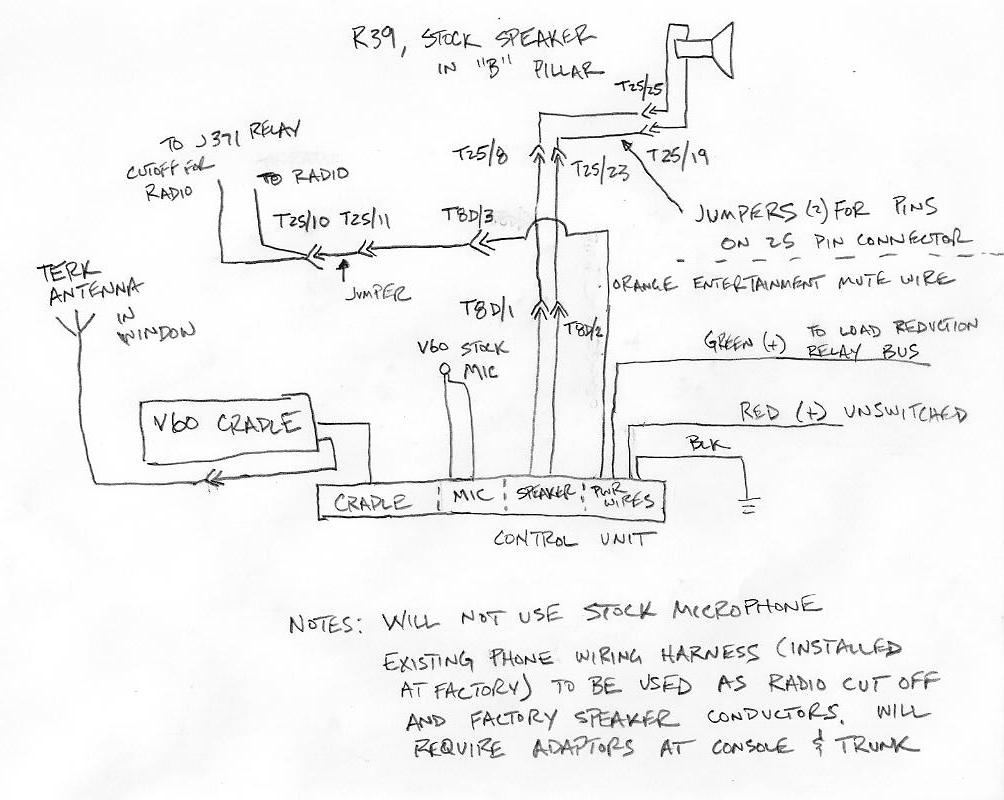 R39, STOCK SPEAKER
IN "B" PILLAR
T25/25
TO J371 RELAY
CUTOFF FOR
RADIO
TO RADIO
T25/8
T25/23
T25/19
T25/10
T25/11
T8D/3
JUMPER
JUMPERS (2) FOR PINS
ON 25 PIN CONNECTOR
TERK
ANTENNA
IN
WINDOW
ORANGE ENTERTAINMENT MUTE WIRE
T8D/1
T8D/2
GREEN (+)
TO LOAD REDUCTION
RELAY BUS
V60 STOCK
MIC
V60 CRADLE
RED (+) UNSWITCHED
BLK
CRADLE
MIC
SPEAKER
PWR
WIRES
CONTROL UNIT
NOTES: WILL NOT USE STOCK MICROPHONE
EXISTING PHONE WIRING HARNESS (INSTALLED
AT FACTORY) TO BE USED AS RADIO CUT OFF
AND FACTORY SPEAKER CONDUCTORS. WILL
REQUIRE ADAPTORS AT CONSOLE & TRUNK